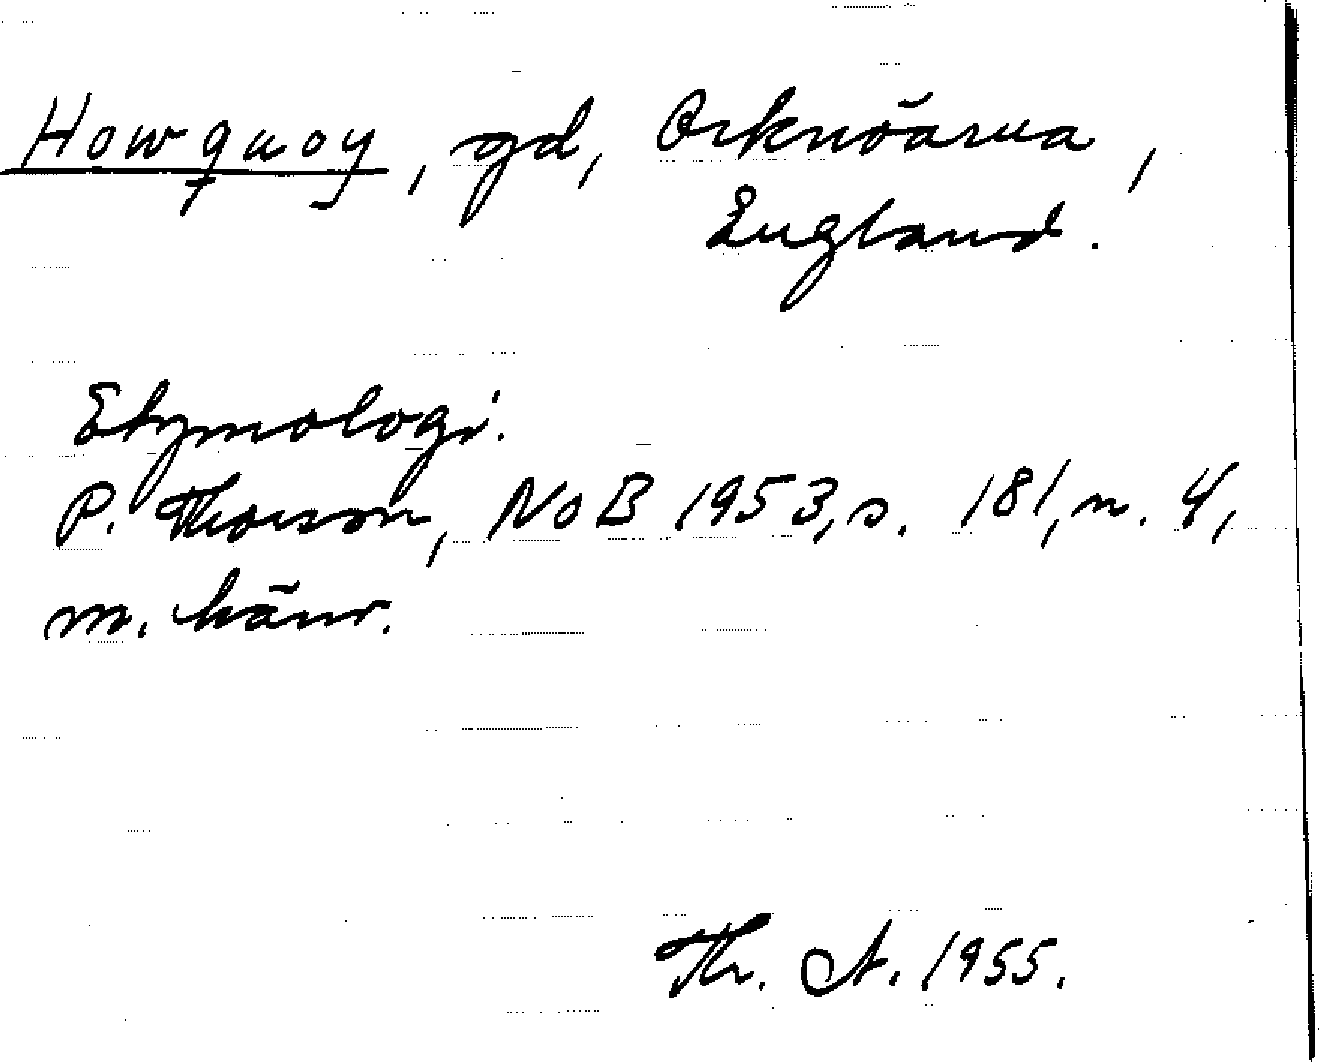 Howquoy, gd, Orknöarna,
England.
Etymologi.
P. Thorson, NoB 1953, s. 181, n. 4,
m. hänv.
Th. A. 1955.